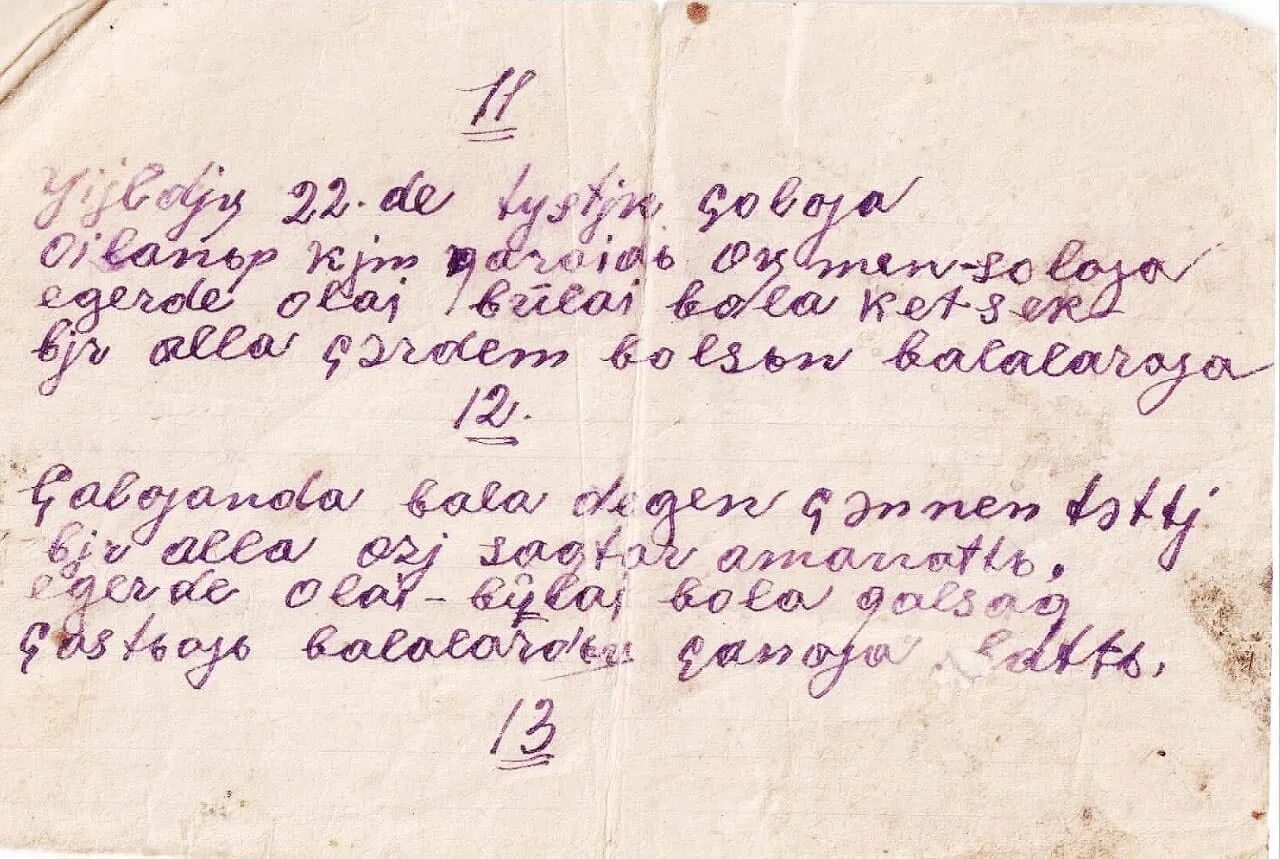 11
Yijldjꞑ 22.de tystjk çolƣa
Oilanьp kjm qaraidь Oꞑ men-solƣa
egerde olai būlai bola ketsek
bjr alla çərdem bolsьn balalarƣa
12.
Çalƣanda bala degen çənnen təttj
bjr alla ozj saqtar amanattь.
egerde olai-būlai bola qalsaq
çastьƣь balalardьꞑ çanƣa battь.
13